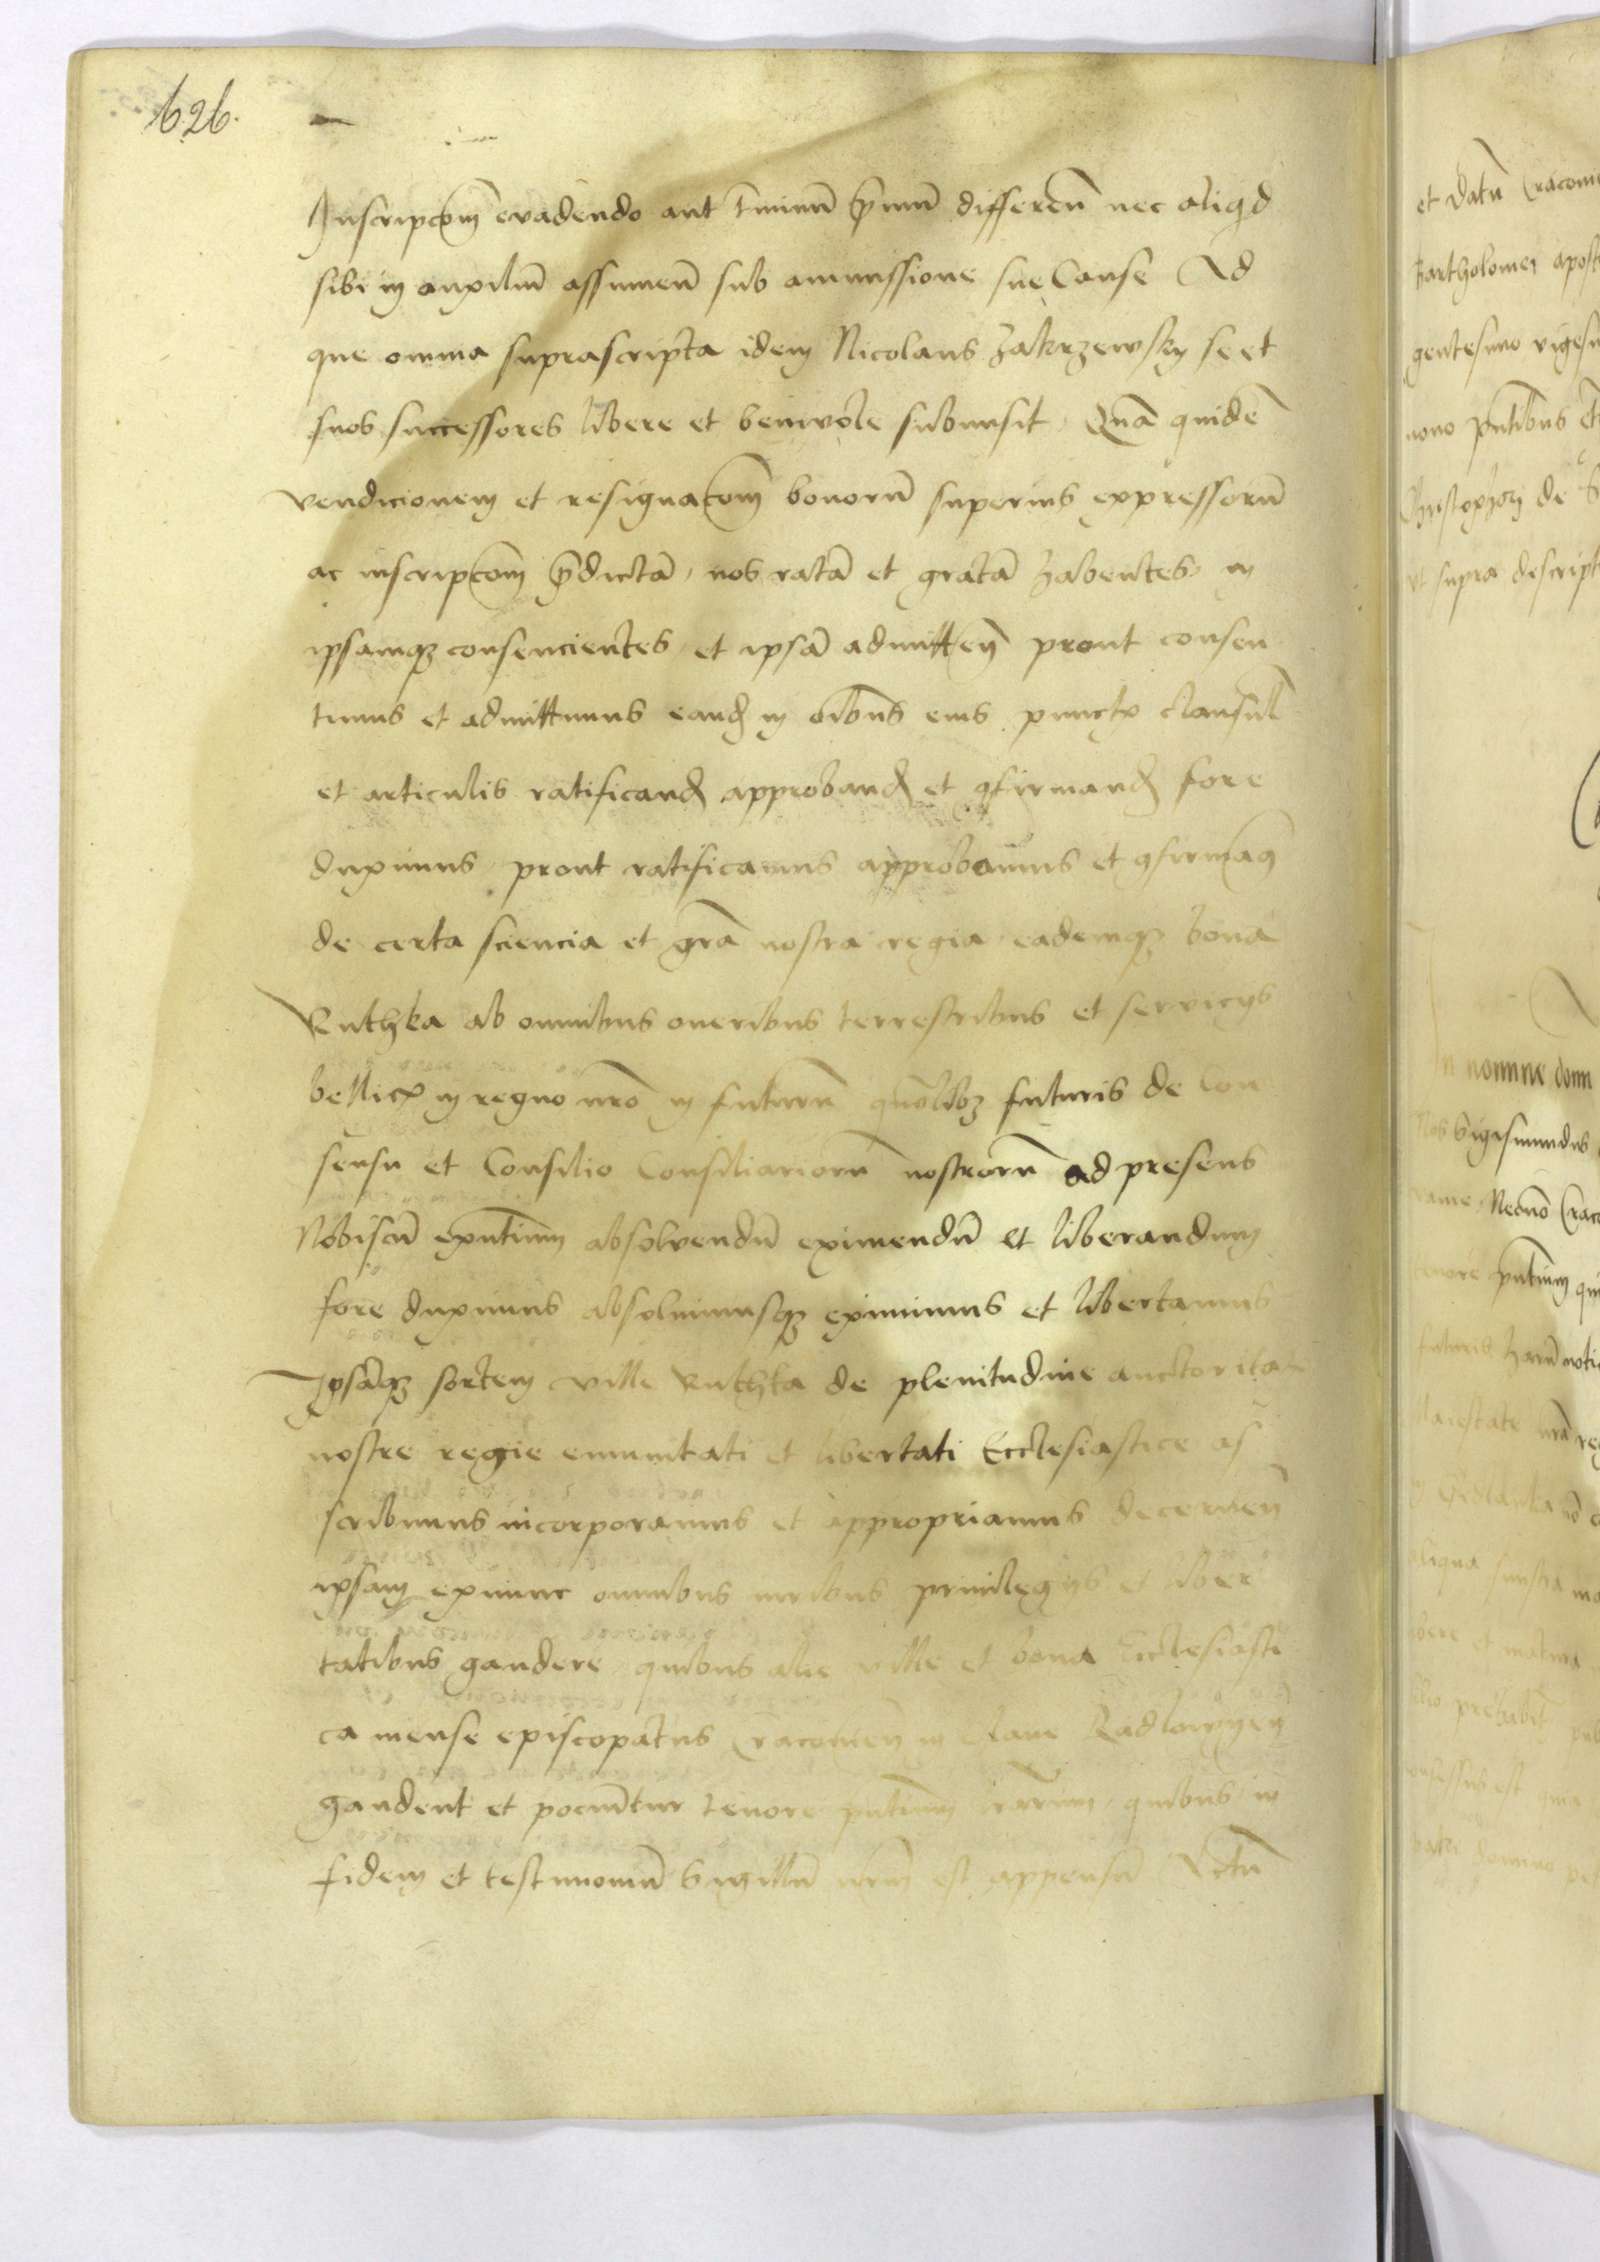 626.
Inscripcōm evadendo aut t̄minū p̄mū differeñ nec aliqd
sibi in auxiliū assumeñ sub ammissione sue Cause Ad
que omnia suprascripta idem Nicolaus Zakrzewsky se et
suos successores libere et benivole submisit, Quā quidē
vendicionem et resignacōm bonorū superius expressorū
ac inscripcōm p̄dictā, nos ratā et gratā habentes, in
ipsamqz consencientes, et ipsā admitteñ prout consen
timus et admittimus eand in oībus eius punctis clausul
et articulis ratificand approband et ɔfirmand fore
duximus, prout ratificamus approbamus et ɔfirmaꝫ
de certa sciencia et grā nostra regia, eademqz bona
Ruthka ab omnibus oneribus terrestribus et servicijs
bellicis in regno nrō in futurū quōlibz futuris de Con
sensu et Consilio Consiliariorū nostrorū ad presens
Nobiscū exn̄tium absolvendū eximendū et liberandum
fore duximus absoluimusqz eximimus et libertamus
Ipsāqz sortem ville Ruthka de plenitudine auctoritat
nostre regie emunitati et libertati Ecclesiastice as
scribimus incorporamus et appropriamus decerneñ
ipsam exnunc omnibus iuribus privilegijs et liber
tatibus gaudere, quibus alie ville et bona Ecclesiasti
ca mense episcopatus Cracovieñ in clave Radlowyeñ
gaudent et pociūtur tenore pn̄tium lrārum, quibus in
fidem et testimoniū Sigillū nrm̄ est appensū Actū
et Datū Cracovi
Bartholomei apost
gentesimo vigesi
nono pn̄tibus
Christophori de
ut supra descript
In nomine domi
Nos Sigismundus
Necnō Crac
tenore pn̄tium qui
futuris harū noti
Maiestate nrā re